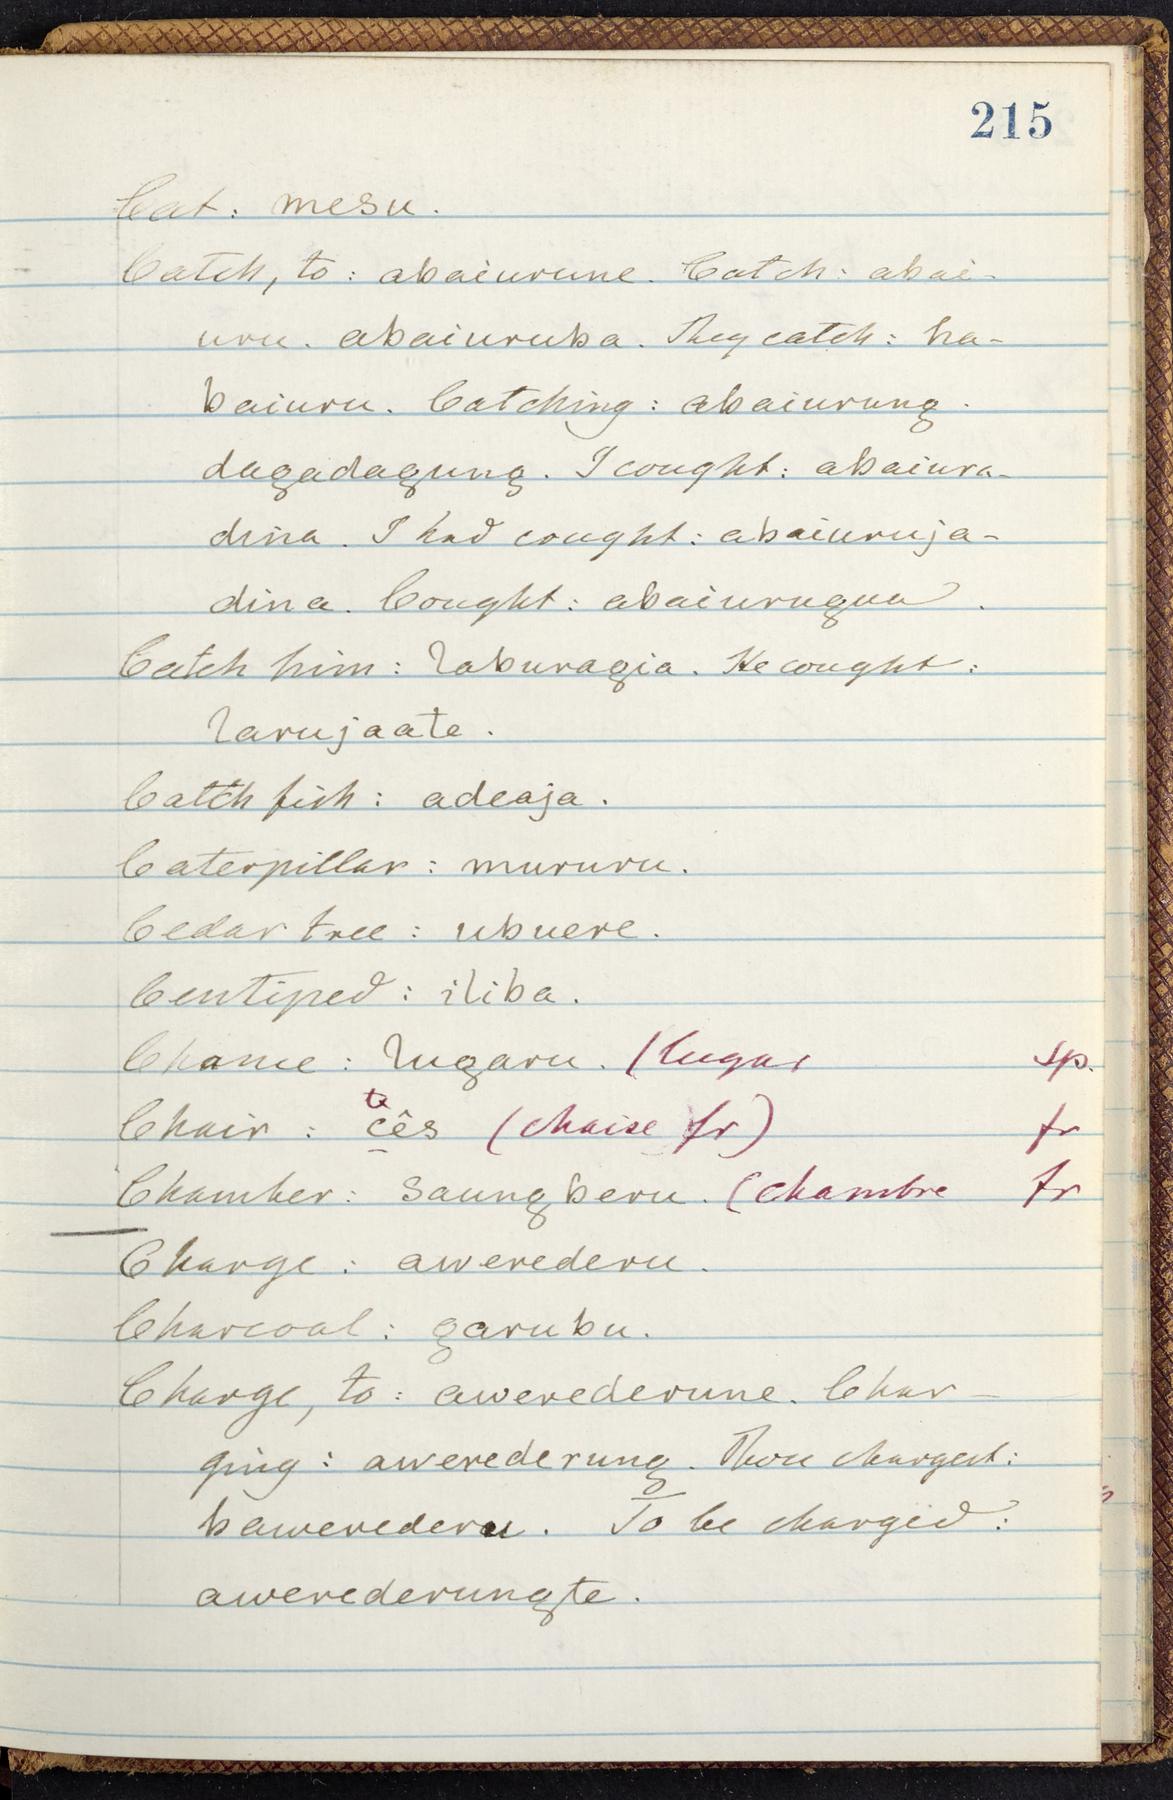 215
Cat: mesu.
Catch, to: abaiurune. Catch: abai-
uru. abaiuruba. They catch: ha-
baiuru. Catching: abaiurung.
dagadagung. I cought: abaiura-
dina. I had cought: abaiuruja-
dina. Cought: abaiurugua.
Catch him: laburagia. He cought:
larujaate.
Catch fish: adeaja.
Caterpillar: mururu.
Cedar tree: ubuere.
Centiped: iliba.
Chance: lugaru. (lugar sp.
Chair: cês (chaise fr) fr
Chamber: saungberu. (chambre fr
Charge: awerederu.
Charcoal: garubu.
Charge, to: awerederune. Char-
ging: awerederung. Thou chargest:
bawerederu. To be charged:
awerederungte.